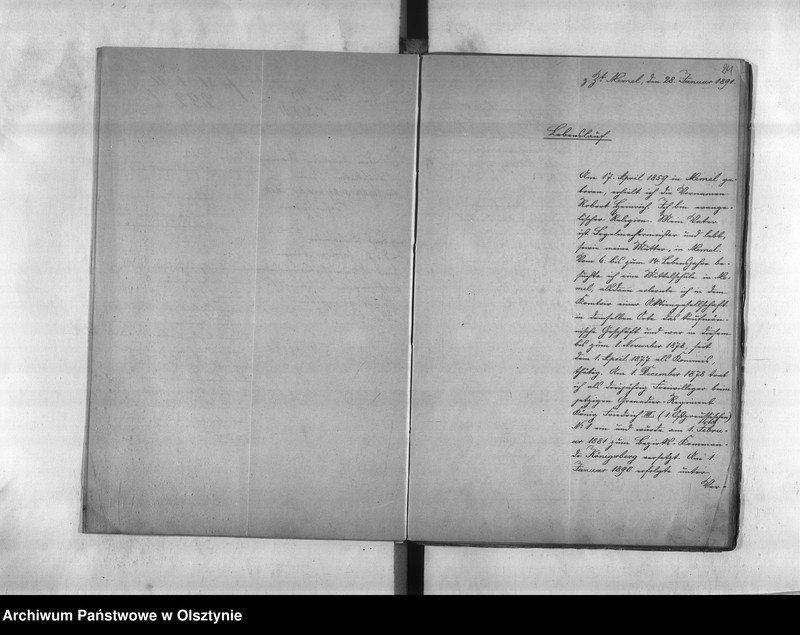 z. Zt. Memel, den 28. Januar 1891.
Lebenslauf.
Am 17. April 1859 in Memel ge-
boren, erhielt ich die Vornamen
Robert Heinrich. Ich bin evange-
lischer Religion. Mein Vater
ist Segelmachermeister und lebt,
sowie meine Mutter, in Memel.
Vom 6. bis zum 14. Lebensjahre be-
suchte ich eine Mittelschule in Me-
mel, alsdann erlernte ich in dem
Komtoir einer Aktiengesellschaft
in demselben Orte das Kaufmän-
nische Geschäft und war in diesem
bis zum 1. November 1878, seit
dem 1. April 1877 als Kommis,
thätig. Am 1. Dezember 1878 trat
ich als dreijährig Freiwilliger beim
jetzigen Grenadier-Regiment
König Friedrich III (1. Ostpreußischen)
No 1 ein und wurde am 1. Febru-
ar 1881 zum Bezirks-Komman-
do Königsberg versetzt. Am 1.
Januar 1890 erfolgte unter
Ver-
Archiwum Państwowe w Olsztynie